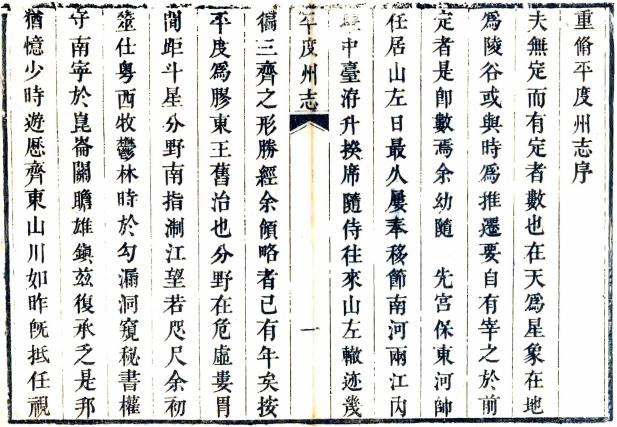 重脩平度州志序
夫無定而有定者數也在天爲星象在地
爲陵谷或與時爲推遷要自有宰之於前
定者是卽數焉余幼隨 先宮保東河帥
任居山左日最久屢奉移節南河兩江內
中臺洊升揆席隨侍往來山左轍迹幾
徧三齊之形勝經余領略者已有年矣按
平度州志 一
平度爲膠東王舊治也分野在危虛婁胃
間距斗星分野南指淛江望若咫尺余初
筮仕粵西牧鬱林時於勾漏洞窺秘書權
守南寧於崑崙關瞻雄鎮茲復承乏是邦
猶憶少時遊歷齊東山川如昨旣抵任視